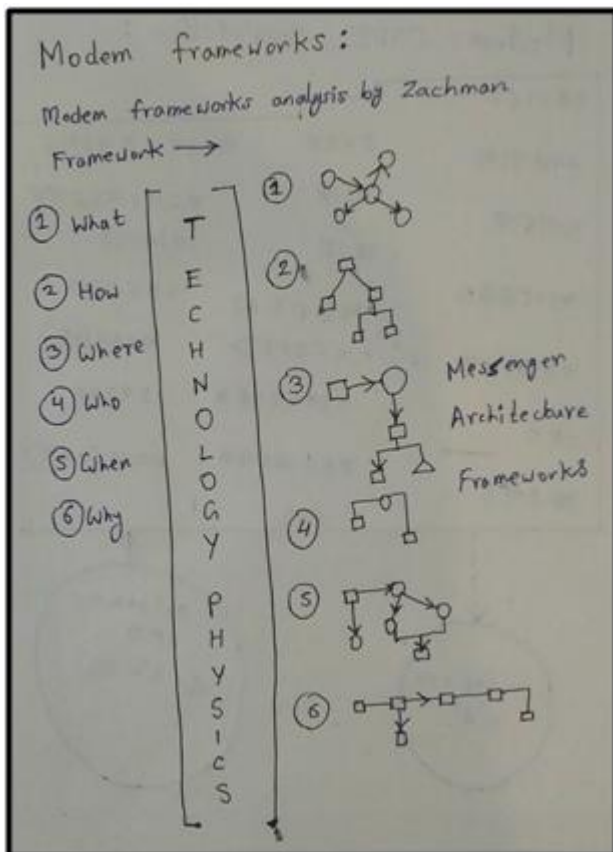 Modem frameworks:
Modem frameworks analysis by Zachman
Framework →
① What
② How
③ Where
④ Who
⑤ When
⑥ Why
T
E
C
H
N
O
L
O
G
Y
P
H
Y
S
I
C
S
①
②
③
④
⑤
⑥
Messenger
Architecture
Frameworks